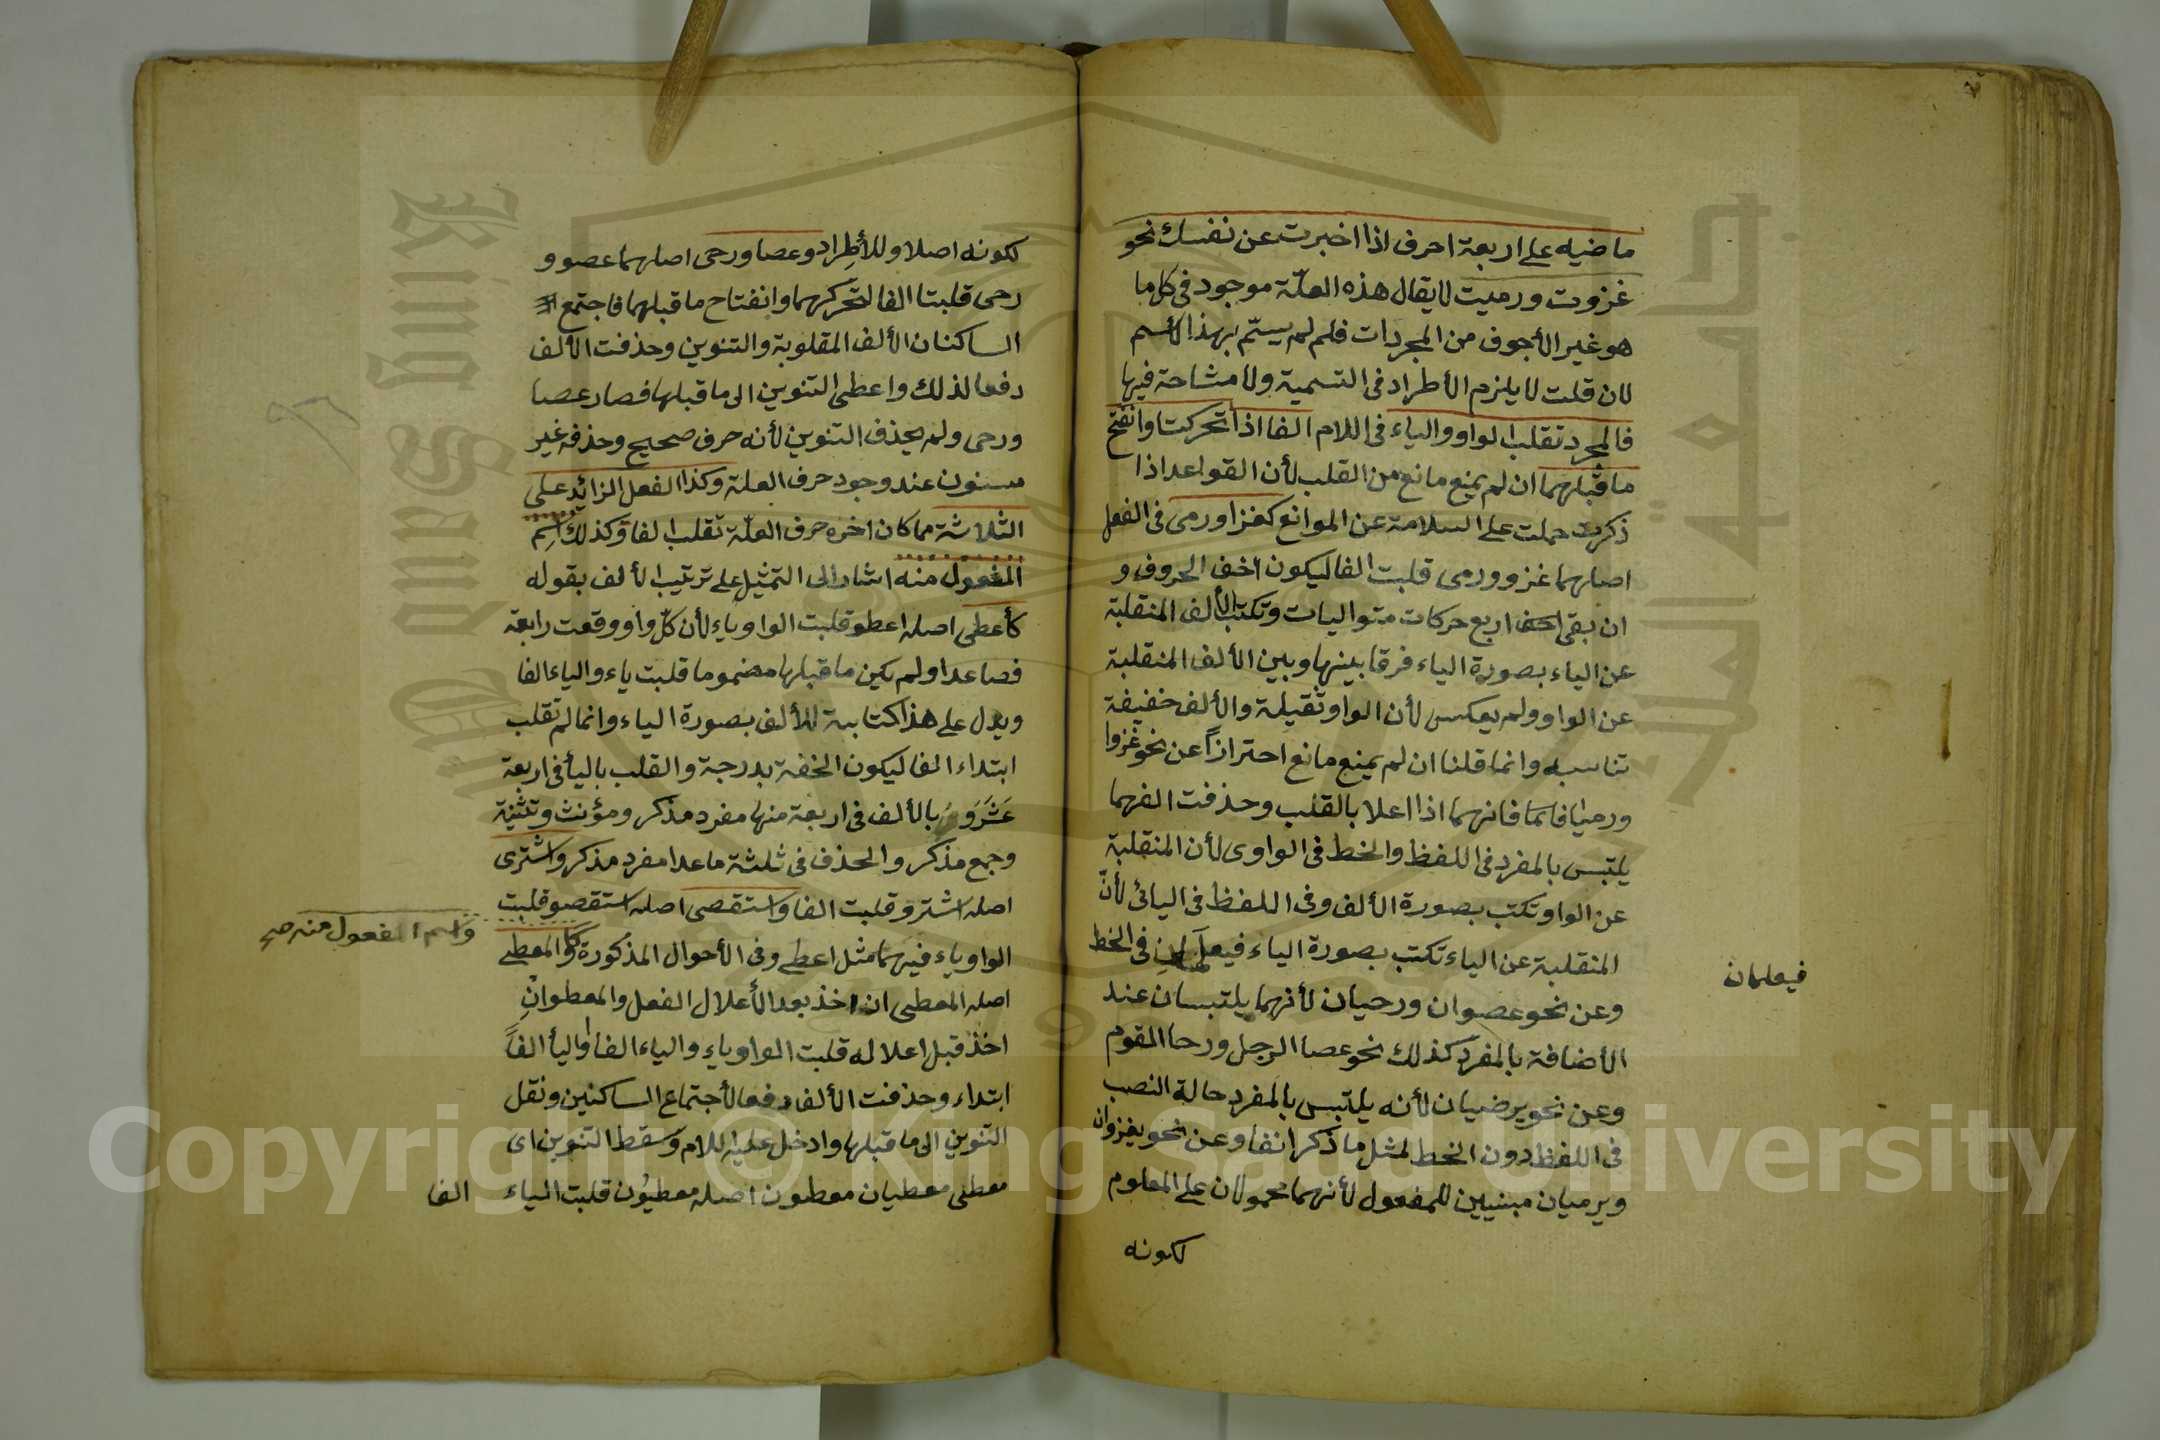 ماضيه على اربعة احرف اذا اخبرت عن نفسك نحو
غزوت ورميت لا يقال هذه العلّة موجود في كل ما
هو غير الأجوف من المجردات فلم لم يسمّ بهذا الأسم
لان قلت لا يلزم الأطراد في التسمية ولا مشاحة فيها
فالمجرد تقلب الواو والياء في اللام الفا اذا تحركتا وانفتح
ما قبلهما ان لم يمنع مانع من القلب لأن القواعد اذا
ذكرت حملت على السلامة عن الموانع كغزا ورمى في الفعل
اصلهما غزو ورمى قلبت الفا ليكون اخف الحروف و
ان بقى اربع حركات متواليات وتكتب الألف المنقلبة
عن الياء بصورة الياء فرقا بينها وبين الألف المنقلبة
عن الواو ولم يعكس لأن الواو ثقيلة والألف خفيفة
تناسبه وانما قلنا ان لم يمنع مانع احترازاً عن نحو غزوا
ورميا فانهما اذا اعلا بالقلب وحذفت الفهما
يلتبس بالمفرد في اللفظ والخط في الواوى لأن المنقلبة
عن الواو تكتب بصورة الألف وفى اللفظ في اليائى لأنّ
المنقلبة عن الياء تكتب بصورة الياء في الخط
فيعلمان
وعن نحو عصوان ورحيان لأنهما يلتبسان عند
الأضافة بالمفرد كذلك نحو عصا الرجل ورحا القوم
وعن نحو يرضيان لأنه يلتبس بالمفرد حالة النصب
في اللفظ دون الخط لمثل ما ذكر انفا وعن نحو يغزوان
ويرميان مبنيين للمفعول لأنهما محمولان على المعلوم
لكونه
لكونه اصلا وللأطراد وعصا ورحى اصلهما عصو و
رحى قلبتا الفا لتحركهما وانفتاح ما قبلهما فاجتمع
الساكنان الألف المقلوبة والتنوين وحذفت الألف
دفعا لذلك واعطى التنوين الى ما قبلها فصار عصا
ورحى ولم يحذف التنوين لأنه حرف صحيح وحذفه غير
مسنون عند وجود حرف العلة وكذا الفعل الزائد على
الثلاثة مما كان اخره حرف العلّة تقلب الفا وكذلك اسم
المفعول منه اشار الى التمثيل على ترتيب الألف بقوله
كأعطى اصله اعطو قلبت الواو ياء لأن كلّ واو وقعت رابعة
فصاعدا ولم يكن ما قبلها مضموما قلبت ياء والياء الفا
ويدل على هذا كتابية للألف بصورة الياء وانما لم تقلب
ابتداء الفا ليكون الخفة بدرجة والقلب باليأ في اربعة
عَشَرَ وَ بالألف في اربعة منها مفرد مذكر ومؤنث وتثنية
وجمع مذكر والحذف في ثلثة ماعدا مفرد مذكر واشترى
اصله اشترو قلبت الفا واستقصى اصله استقصو قلبت
واسم المفعول منه صح
الواو ياء فيهما مثل اعطى وفى الأحوال المذكورة كالمعطى
اصله المعطى ان اخذ بعد الأعلال الفعل والمعطوان
اخذ قبل اعلاله قلبت الواو ياء والياء الفا واليأ الفاً
ابتداء وحذفت الألف دفعا لأجتماع الساكنين ونقل
التنوين الى ما قبلها وادخل عليه اللام وسقط التنوين اى
معطى معطيان معطون اصله معطيُون قلبت الياء
الفا
Copyright © King Saud University
King Saud University
جامعة الملك سعود
1957